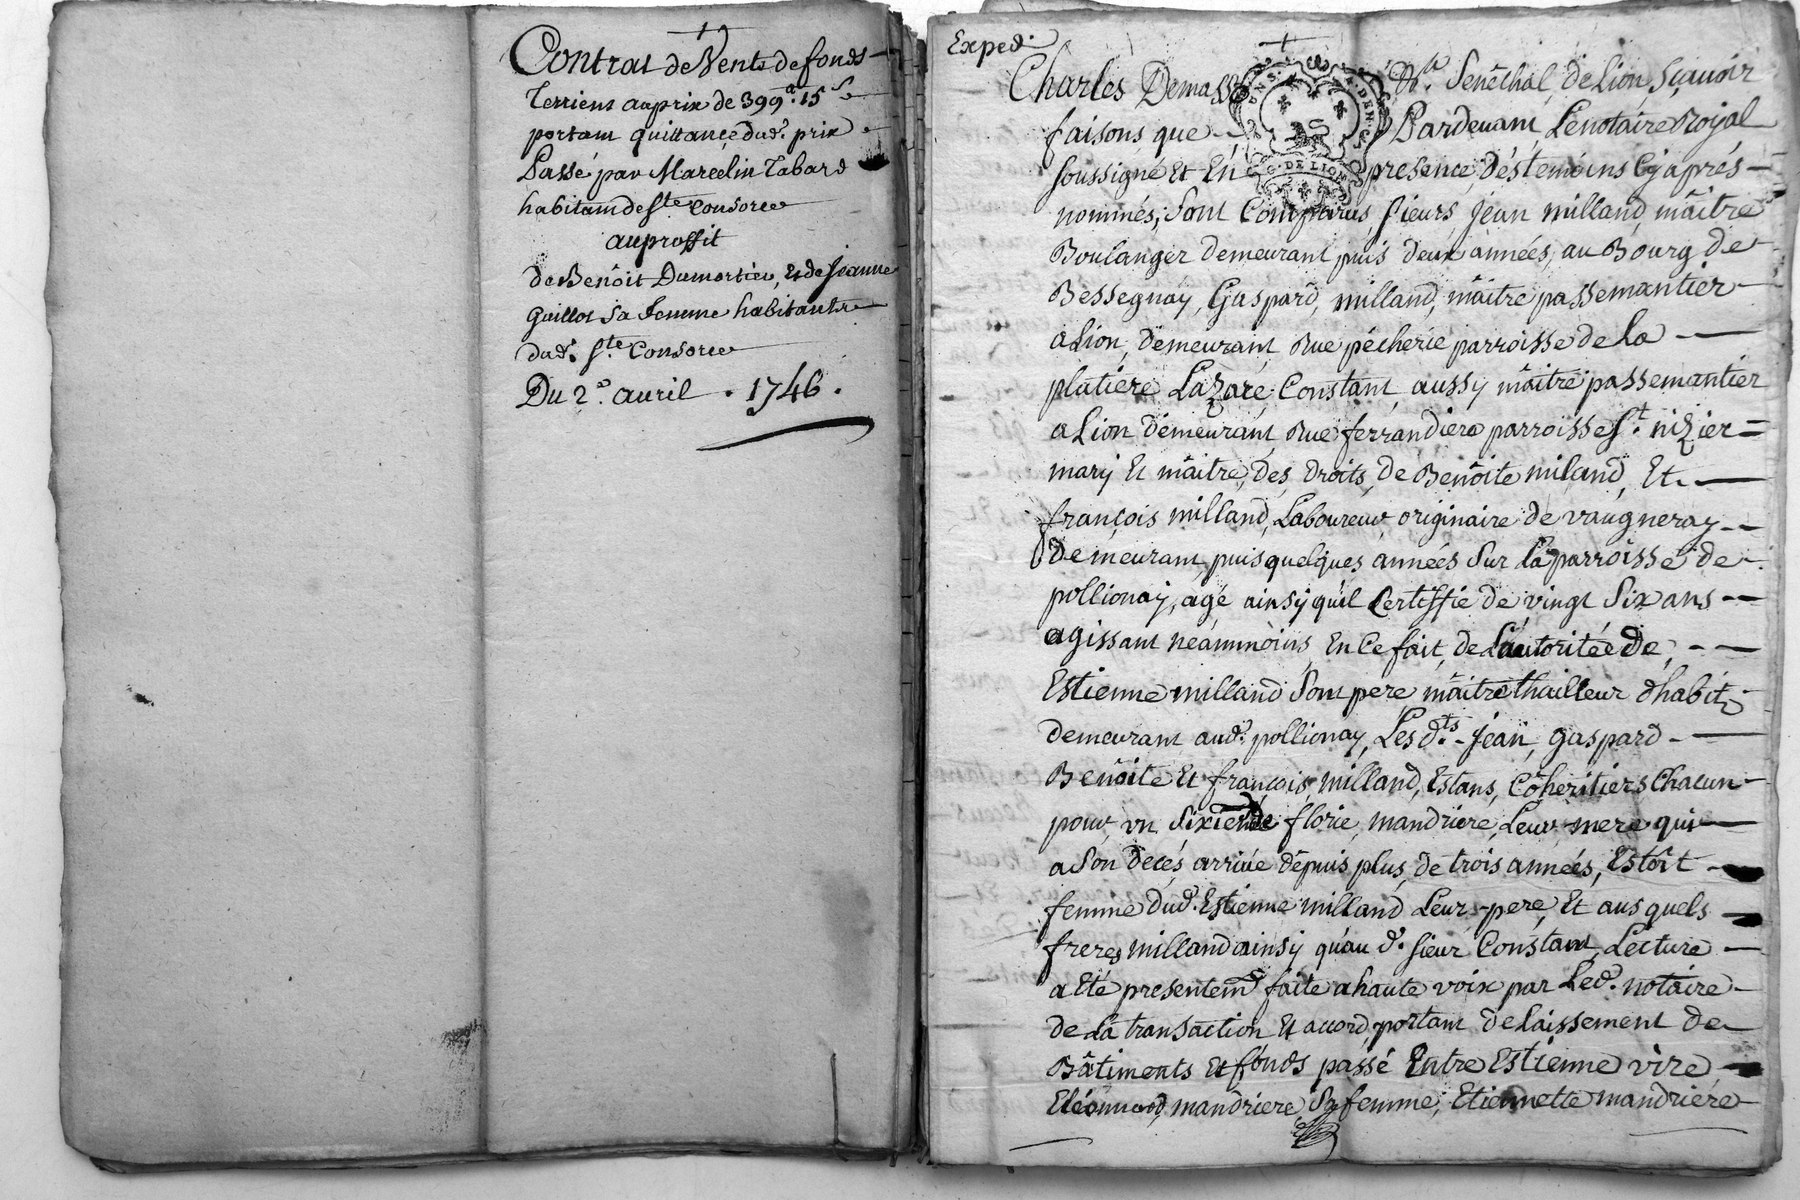 Contrat de Vente de fonds
Terriens au prix de 399ᵗᵗ. 15ˢ
portant quittance dud. prix
Passé par Marcelin Tabard
habitant de Ste Consorce
au proffit
de Benoît Dumortier, et de Jeanne
Guillot sa femme habitants
dud. Ste Consorce
Du 2e. avril . 1746 .
Exped.
Charles Demasso Sénéchal de Lion, Sçavoir
faisons que Pardevant Le notaire Royal
soussigné Et En presence Des temoins Cy après
GG. DE LION
nommés; sont Comparus sieurs Jean milland, mâitre
Boulanger demeurant puis deux années, au Bourg de
Bessegnay, Gaspard, milland, mâitre passemantier
a Lion, demeurant Rue pécherie parroisse de La
platiére Lazare Constant aussy mâitre passemantier
a Lion demeurant Rue ferrandiere parroisse St. nizier
mary Et mâitre des Droits de Benôite miland, Et
françois milland, Laboureur originaire de vaugneray
demeurant puis quelques années sur La parroisse de
pollionay, agé ainsy qu'il Certiffie de vingt six ans
agissant néammoins En ce fait de L'autoritée de
Estienne milland son pere mâitre thailleur d'habits
demeurant aud. pollionay, Les dts. Jean, gaspard
Benôite Et françois milland, Estans, Cohéritiers Chacun
pour un sixieme de florie mandriere, Leur mere qui
a son decés arrivée depuis plus de trois années, Estoit
femme dud. Estienne milland Leur pere, Et ausquels
freres milland ainsy qu'au d. sieur Constant, Lecture
a Eté presentemt faite a haute voix par Led. notaire
de La transaction Et accord portant délaissement de
Bâtiments Et fonds passé Entre Estienne vire
Eléonord, mandriere, sa femme, Etiennette mandriére